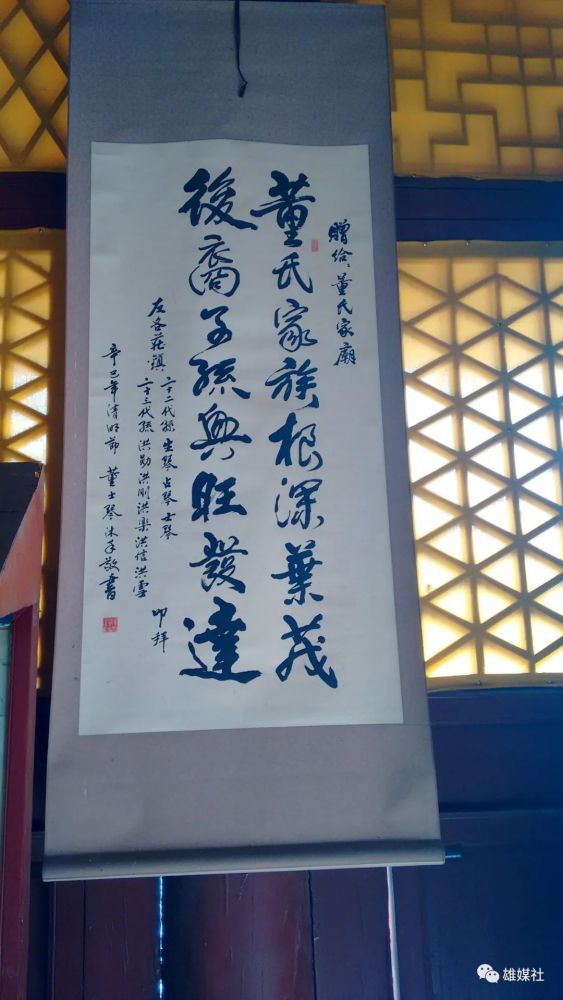 贈给：董氏家廟
董氏家族根深葉茂
後裔子孫興旺發達
左各莊鎮
二十二代孫生琴占琴士琴
二十三代孫洪勋洪刚洪樂洪信洪雪
叩拜
辛巳年清明节 董士琴沐手敬書
雄媒社